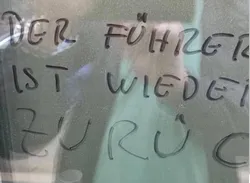 DER FÜHRER
IST WIEDE
ZURÜC